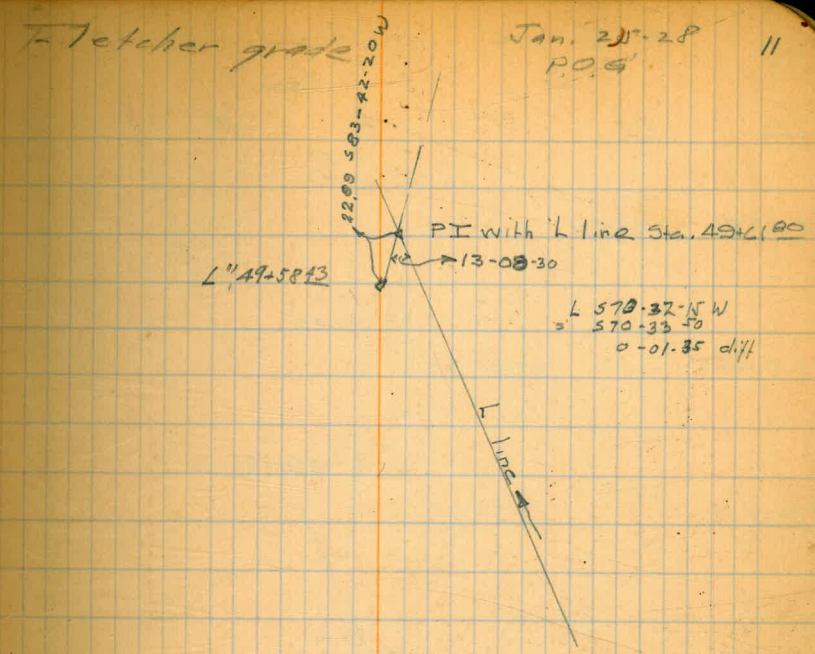 Fletcher grade
Jan. 25-28
P.O.G
11
22.09 S83-42-20W
PI with L line Sta. 49+61 80
13-08-30
L", 49+58 43
L S70-32-15 W
= S70-33 50
0-01-35 diff
L line